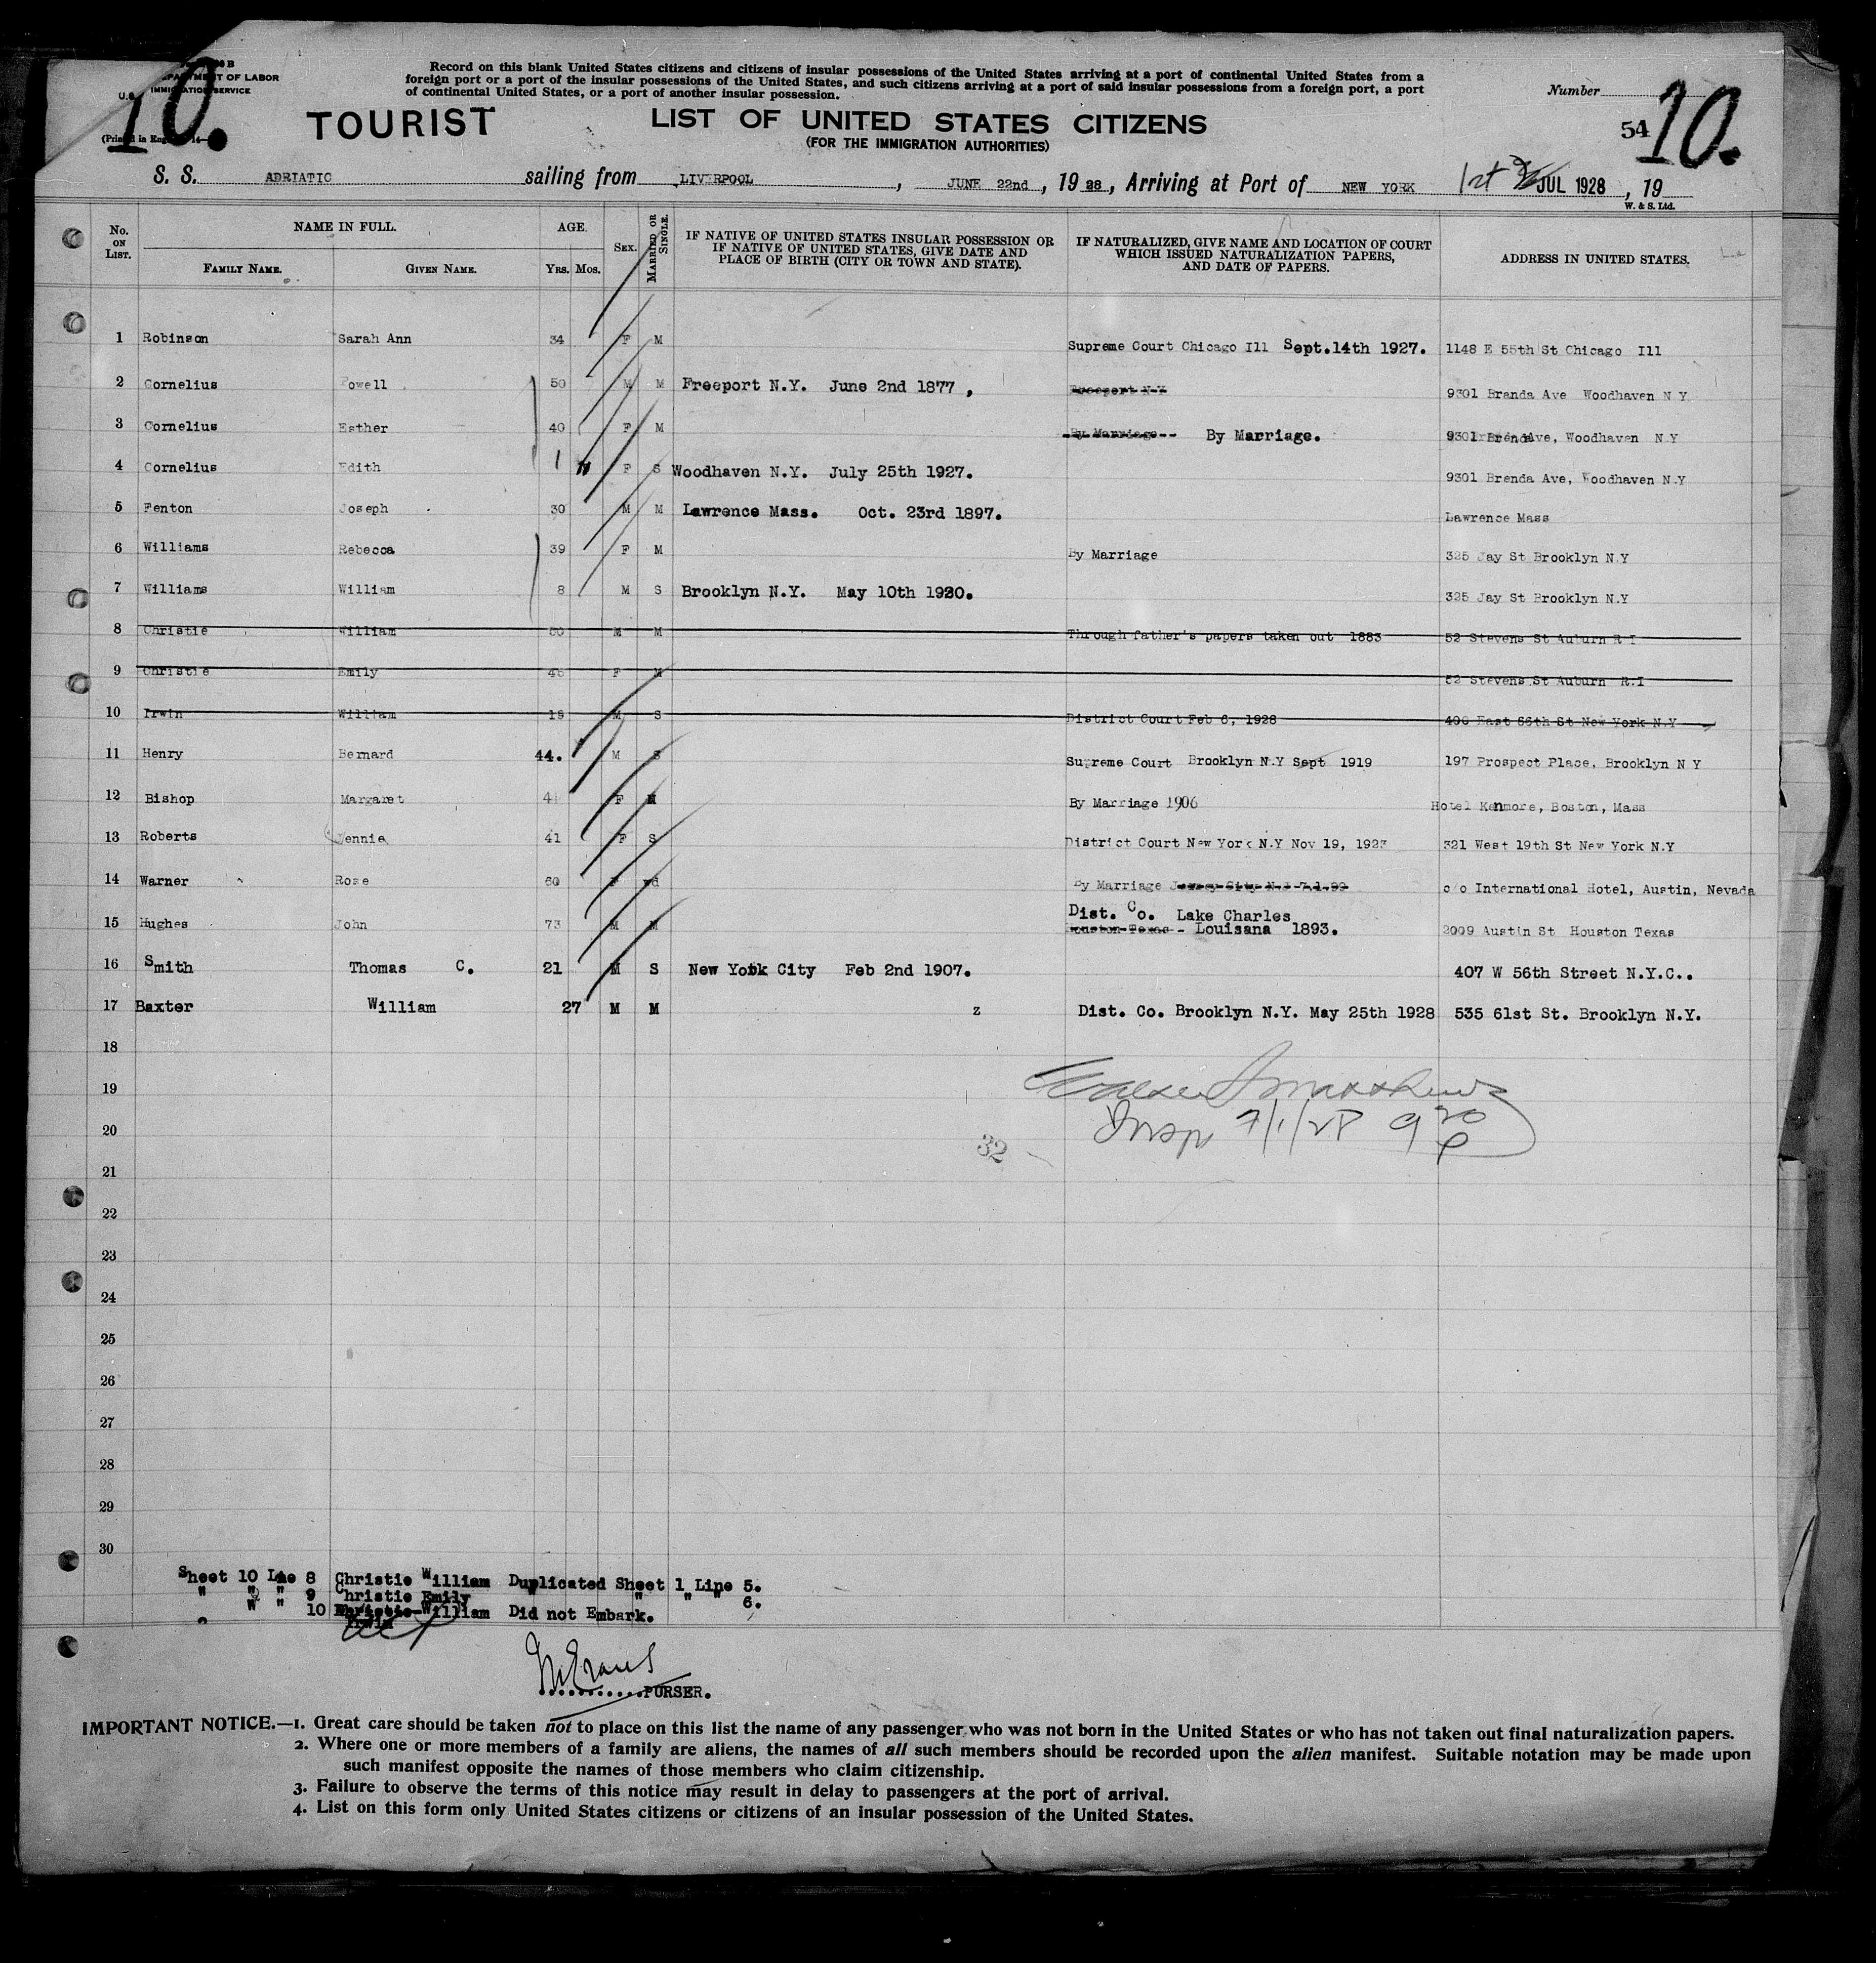 10.
DEPARTMENT OF LABOR
IMMIGRATION SERVICE
Record on this blank United States citizens and citizens of insular possessions of the United States arriving at a port of continental United States from a
foreign port or a port of the insular possessions of the United States, and such citizens arriving at a port of said insular possessions from a foreign port, a port
of continental United States, or a port of another insular possession.
Number
54 10.
TOURIST
LIST OF UNITED STATES CITIZENS
(FOR THE IMMIGRATION AUTHORITIES)
S. S. ADRIATIC sailing from LIVERPOOL, JUNE 22nd, 19 28, Arriving at Port of NEW YORK 1st JUL 1928, 19
W. & S. Ltd.
No. ON LIST.
NAME IN FULL.
FAMILY NAME. GIVEN NAME.
AGE.
Yrs. Mos.
SEX.
MARRIED OR SINGLE.
IF NATIVE OF UNITED STATES INSULAR POSSESSION OR
IF NATIVE OF UNITED STATES, GIVE DATE AND
PLACE OF BIRTH (CITY OR TOWN AND STATE).
IF NATURALIZED, GIVE NAME AND LOCATION OF COURT
WHICH ISSUED NATURALIZATION PAPERS,
AND DATE OF PAPERS.
ADDRESS IN UNITED STATES.
1 Robinson Sarah Ann 34 F M Supreme Court Chicago Ill Sept.14th 1927. 1148 E 55th St Chicago Ill
2 Cornelius Powell 50 M M Freeport N.Y. June 2nd 1877 , Freeport N.Y 9301 Brenda Ave Woodhaven N Y
3 Cornelius Esther 40 F M By Marriage-- By Marriage. 9301 Brenda Ave, Woodhaven N Y
4 Cornelius Edith 1 F S Woodhaven N.Y. July 25th 1927. 9301 Brenda Ave, Woodhaven N.Y
5 Fenton Joseph 30 M M Lawrence Mass. Oct. 23rd 1897. Lawrence Mass
6 Williams Rebecca 39 F M By Marriage 325 Jay St Brooklyn N.Y
7 Williams William 8 M S Brooklyn N.Y. May 10th 1920. 325 Jay St Brooklyn N.Y
8 Christie William 50 M M Through father's papers taken out 1883 52 Stevens St Auburn R I
9 Christie Emily 48 F M 52 Stevens St Auburn R.I
10 Irwin William 18 M S District Court Feb 6, 1928 406 East 66th St New York N.Y
11 Henry Bernard 44. M S Supreme Court Brooklyn N.Y Sept 1919 197 Prospect Place, Brooklyn N Y
12 Bishop Margaret 41 F M By Marriage 1906 Hotel Kenmore, Boston, Mass
13 Roberts Jennie 41 F S District Court New York N.Y Nov 19, 1923 321 West 19th St New York N.Y
14 Warner Rose 60 F wd By Marriage Jersey City N.J 7.1.99 c/o International Hotel, Austin, Nevada
15 Hughes John 73 M M Dist. Co. Lake Charles
Houston Texas - Louisana 1893. 2009 Austin St Houston Texas
16 Smith Thomas C. 21 M S New York City Feb 2nd 1907. 407 W 56th Street N.Y.C..
17 Baxter William 27 M M z Dist. Co. Brooklyn N.Y. May 25th 1928 535 61st St. Brooklyn N.Y.
18
19
Insp 7/1/28 9 20 P
20
32
21
22
23
24
25
26
27
28
29
30
Sheet 10 Lne 8 Christie William Duplicated Sheet 1 Line 5.
" " " 9 Christie Emily " " " 6.
" " 10 Christie William Did not Embark.
Irwin
M Evans
...........PURSER.
IMPORTANT NOTICE.—1. Great care should be taken not to place on this list the name of any passenger who was not born in the United States or who has not taken out final naturalization papers.
2. Where one or more members of a family are aliens, the names of all such members should be recorded upon the alien manifest. Suitable notation may be made upon
such manifest opposite the names of those members who claim citizenship.
3. Failure to observe the terms of this notice may result in delay to passengers at the port of arrival.
4. List on this form only United States citizens or citizens of an insular possession of the United States.